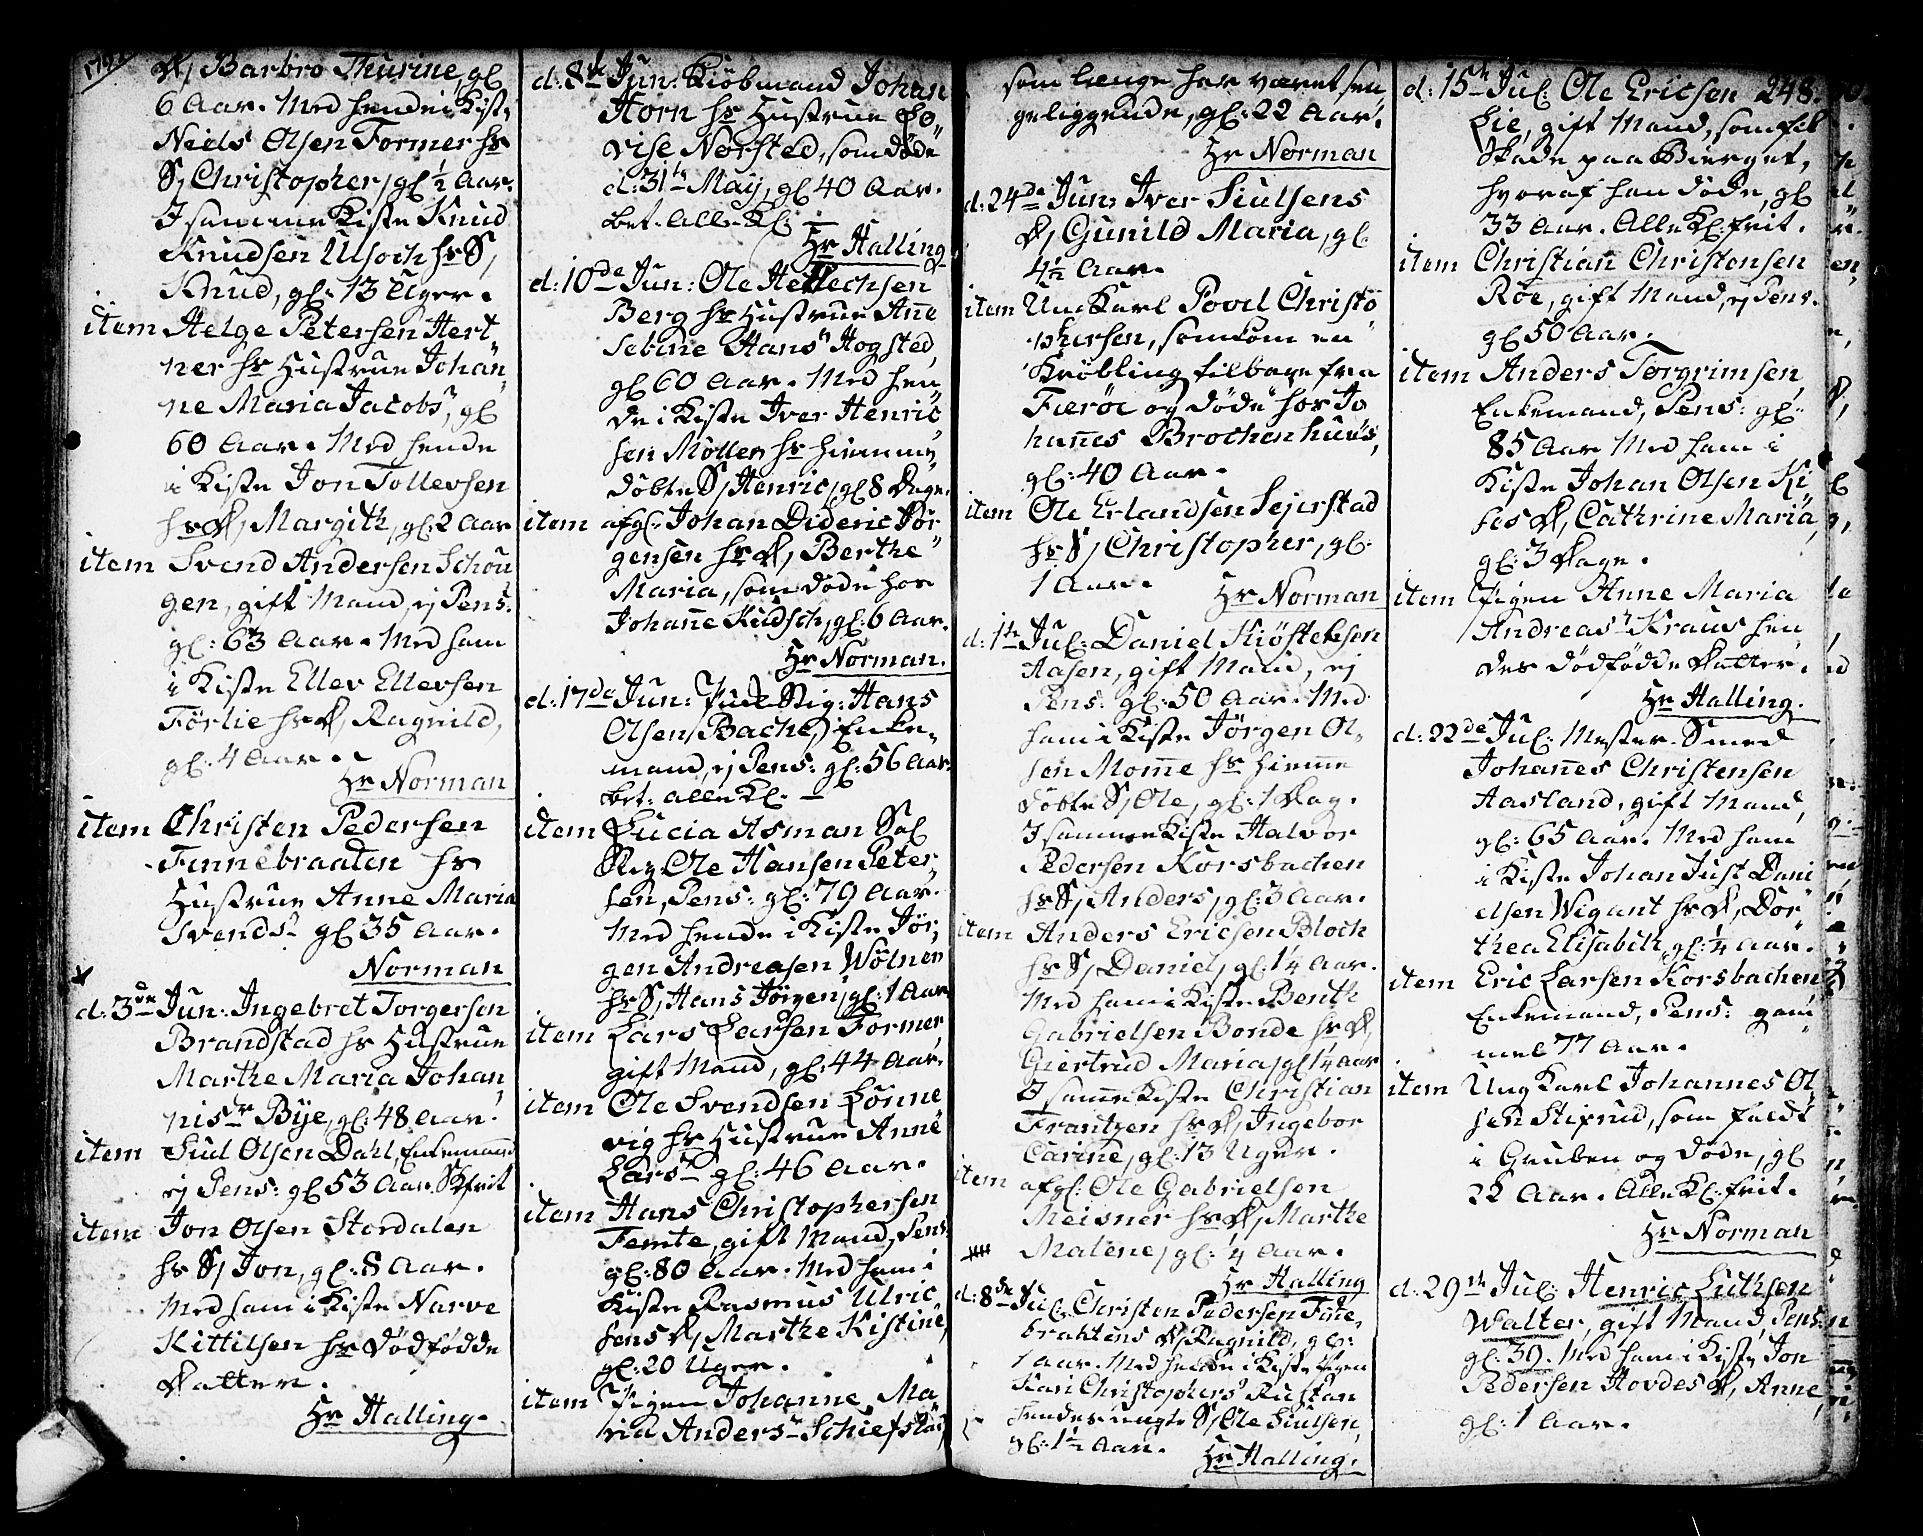 D, Barbro Thurine, gl
6 Aar. Med hende i Kist,
Niels Olsen Former hs
S, Christopher, gl ½ Aar.
I samme Kiste Knud
Knudsen Ulsoch hs S,
Knud, gl: 13 Uger.
item Helge Petersen Hert
ner hs Hustrue Johan
ne Maria Jacobsr, gl
60 Aar. Med hende
i Kiste Jon Tollevsen
hs D, Margith, gl: 2 Aar
item Svend Andersen Schou
gen, gift Mand, ej Pens:
gl: 63 Aar. Med ham
i Kiste Ellev Ellevsen
Förlie hs D, Ragnild,
gl: 4 Aar.
Hr Norman
item Christen Pedersen
Finnebraaten hs
Hustrue Anne Maria
Svendsr gl 35 Aar.
Norman
d: 3de Jun: Ingebret Torgersen
Brandstad hs Hustrue
Marthe Maria Johan
nisr Bije, gl: 48 Aar.
item Siul Olsen Dahl, Enkemand
ej Pens: gl 53 Aar. Sk frit
item Jon Olsen Stordalen
hs S, Jon, gl: 8 Aar.
Med ham i Kiste Narve
Kittilsen hs Dödfödde
Datter.
Hr Halling.
d: 8de Jun: Kiöbmand Johan
Horn hs Hustrue Lo
vise Norsted, som döde
d: 31te May, gl 40 Aar.
Bet. Alle Kl
Hr Halling
d: 10de Jun: Ole Hellechsen
Berg hs Hustrue Anne
Sebine Hansr Hogsted,
gl 60 Aar. Med hen
de i Kiste Iver Henric
sen Möller hs hiemme
döbte S, Henric, gl 8 Dage.
item afgl: Johan Dideric Jör
gensen hs D, Berthe
Maria, som döde hos
Johanne Kudsch, gl: 6 Aar.
Hr Norman.
d: 17de Jun: Jude Stig: Hans
Olsen Bache, Enke
mand, ej Pens: gl: 56 Aar.
Bet: alle Kl.
item Lucia Asman Sal
Stig: Ole Hansen Peter
sen, Pens: gl: 79 Aar.
Med hende i Kiste Jör
gen Andreasen Wölner
hs S, Hans Jörgen, gl: 1 Aar
item Lars Larsen Former,
gift Mand, gl: 44 Aar.
item Ole Svendsen Lönne
vig hs Hustrue Anne
Larsr gl: 46 Aar.
item Hans Christophersen
Femte, gift Mand, Pens
gl: 80 Aar. Med ham i
Kiste Rasmus Ulric
sens D, Marthe Kistine,
gl: 20 Uger.
item Pigen Johanne Ma
ria Andersr Schiefstad,
som længe har været sen
geliggende, gl: 22 Aar.
Hr Norman
d: 24de Jun: Iver Siulsens
D, Gunild Maria, gl
4½ Aar.
item Ung Karl Povel Christo
phersen, som kom en
Kröbling tilbage fra
Færöe og döde hos Jo
hannes Brochenhuus,
gl: 40 Aar.
item Ole Erlandsen Sejerstad
hs S, Christopher, gl:
1 Aar.
Hr Norman
d: 1te Jul: Daniel Kiöstelsen
Aasen, gift Mand, ej
Pens: gl: 50 Aar. Med
ham i Kiste Jörgen Ol
sen Momme hs hiemme
döbte S, Ole, gl: 1 Dag.
I samme Kiste Halvor
Pedersen Korsbachen
hs S, Anders, gl: 3 Aar.
item Anders Ericsen Bloch
hs S, Daniel, gl: 1¼ Aar.
Med ham i Kiste Benth
Gabrielsen Bonde hs D,
Giertrud Maria, gl 1¼ Aar
I samme Kiste Christian
Frantzen hs D, Ingebor
Carine, gl: 13 Uger.
item afgl: Ole Gabrielsen
Meisner hs D, Marthe
Malene, gl: ¼ Aar.
Hr Halling
d: 8de Jul: Christen Pedersen Finne
brahtens D, Ragnild, gl:
1 Aar. Med hende i Kiste Pigen
Kari Christophersr Rustan
hendes uægte S, Ole Siulsen,
gl: 1½ Aar.
Hr Halling.
248.
d: 15de Jul: Ole Ericsen
Lie, gift Mand, som fik
Skade paa Bierget,
hvoraf han döde, gl
33 Aar. Alle Kl: frit.
item Christian Christensen
Röe, gift Mand, ej Pens.
gl 50 Aar.
item Anders Torgrimsen,
Enkemand, Pens: gl:
85 Aar Med ham i
Kiste Johan Olsen Ki
ses D, Cathrine Maria,
gl: 3 Dage.
item Pigen Anne Maria
Andreasr Kraus hen
des dödfödde Datter.
Hr Halling.
d: 22de Jul: Mester Smed
Johannes Christensen
Aasland, gift Mand,
gl: 65 Aar. Med ham
i Kiste Johan Just Dani
elsen Wigant hs D, Dor
thea Elisabeth, gl: ¼ Aar.
item Eric Larsen Korsbachen
Enkemand, Pens: gam
mel 77 Aar.
item Ung Karl Johannes Ol
sen Stifrud, som faldt
i Gruben og döde, gl
22 Aar. Alle Kl: frit.
Hr Norman
d: 29de Jul: Henric Luthsen
Walter, gift Mand, Pens:
gl: 39. Med ham i Kiste Jon
Pedersen Hovdes D, Anne,
gl: 1 Aar.